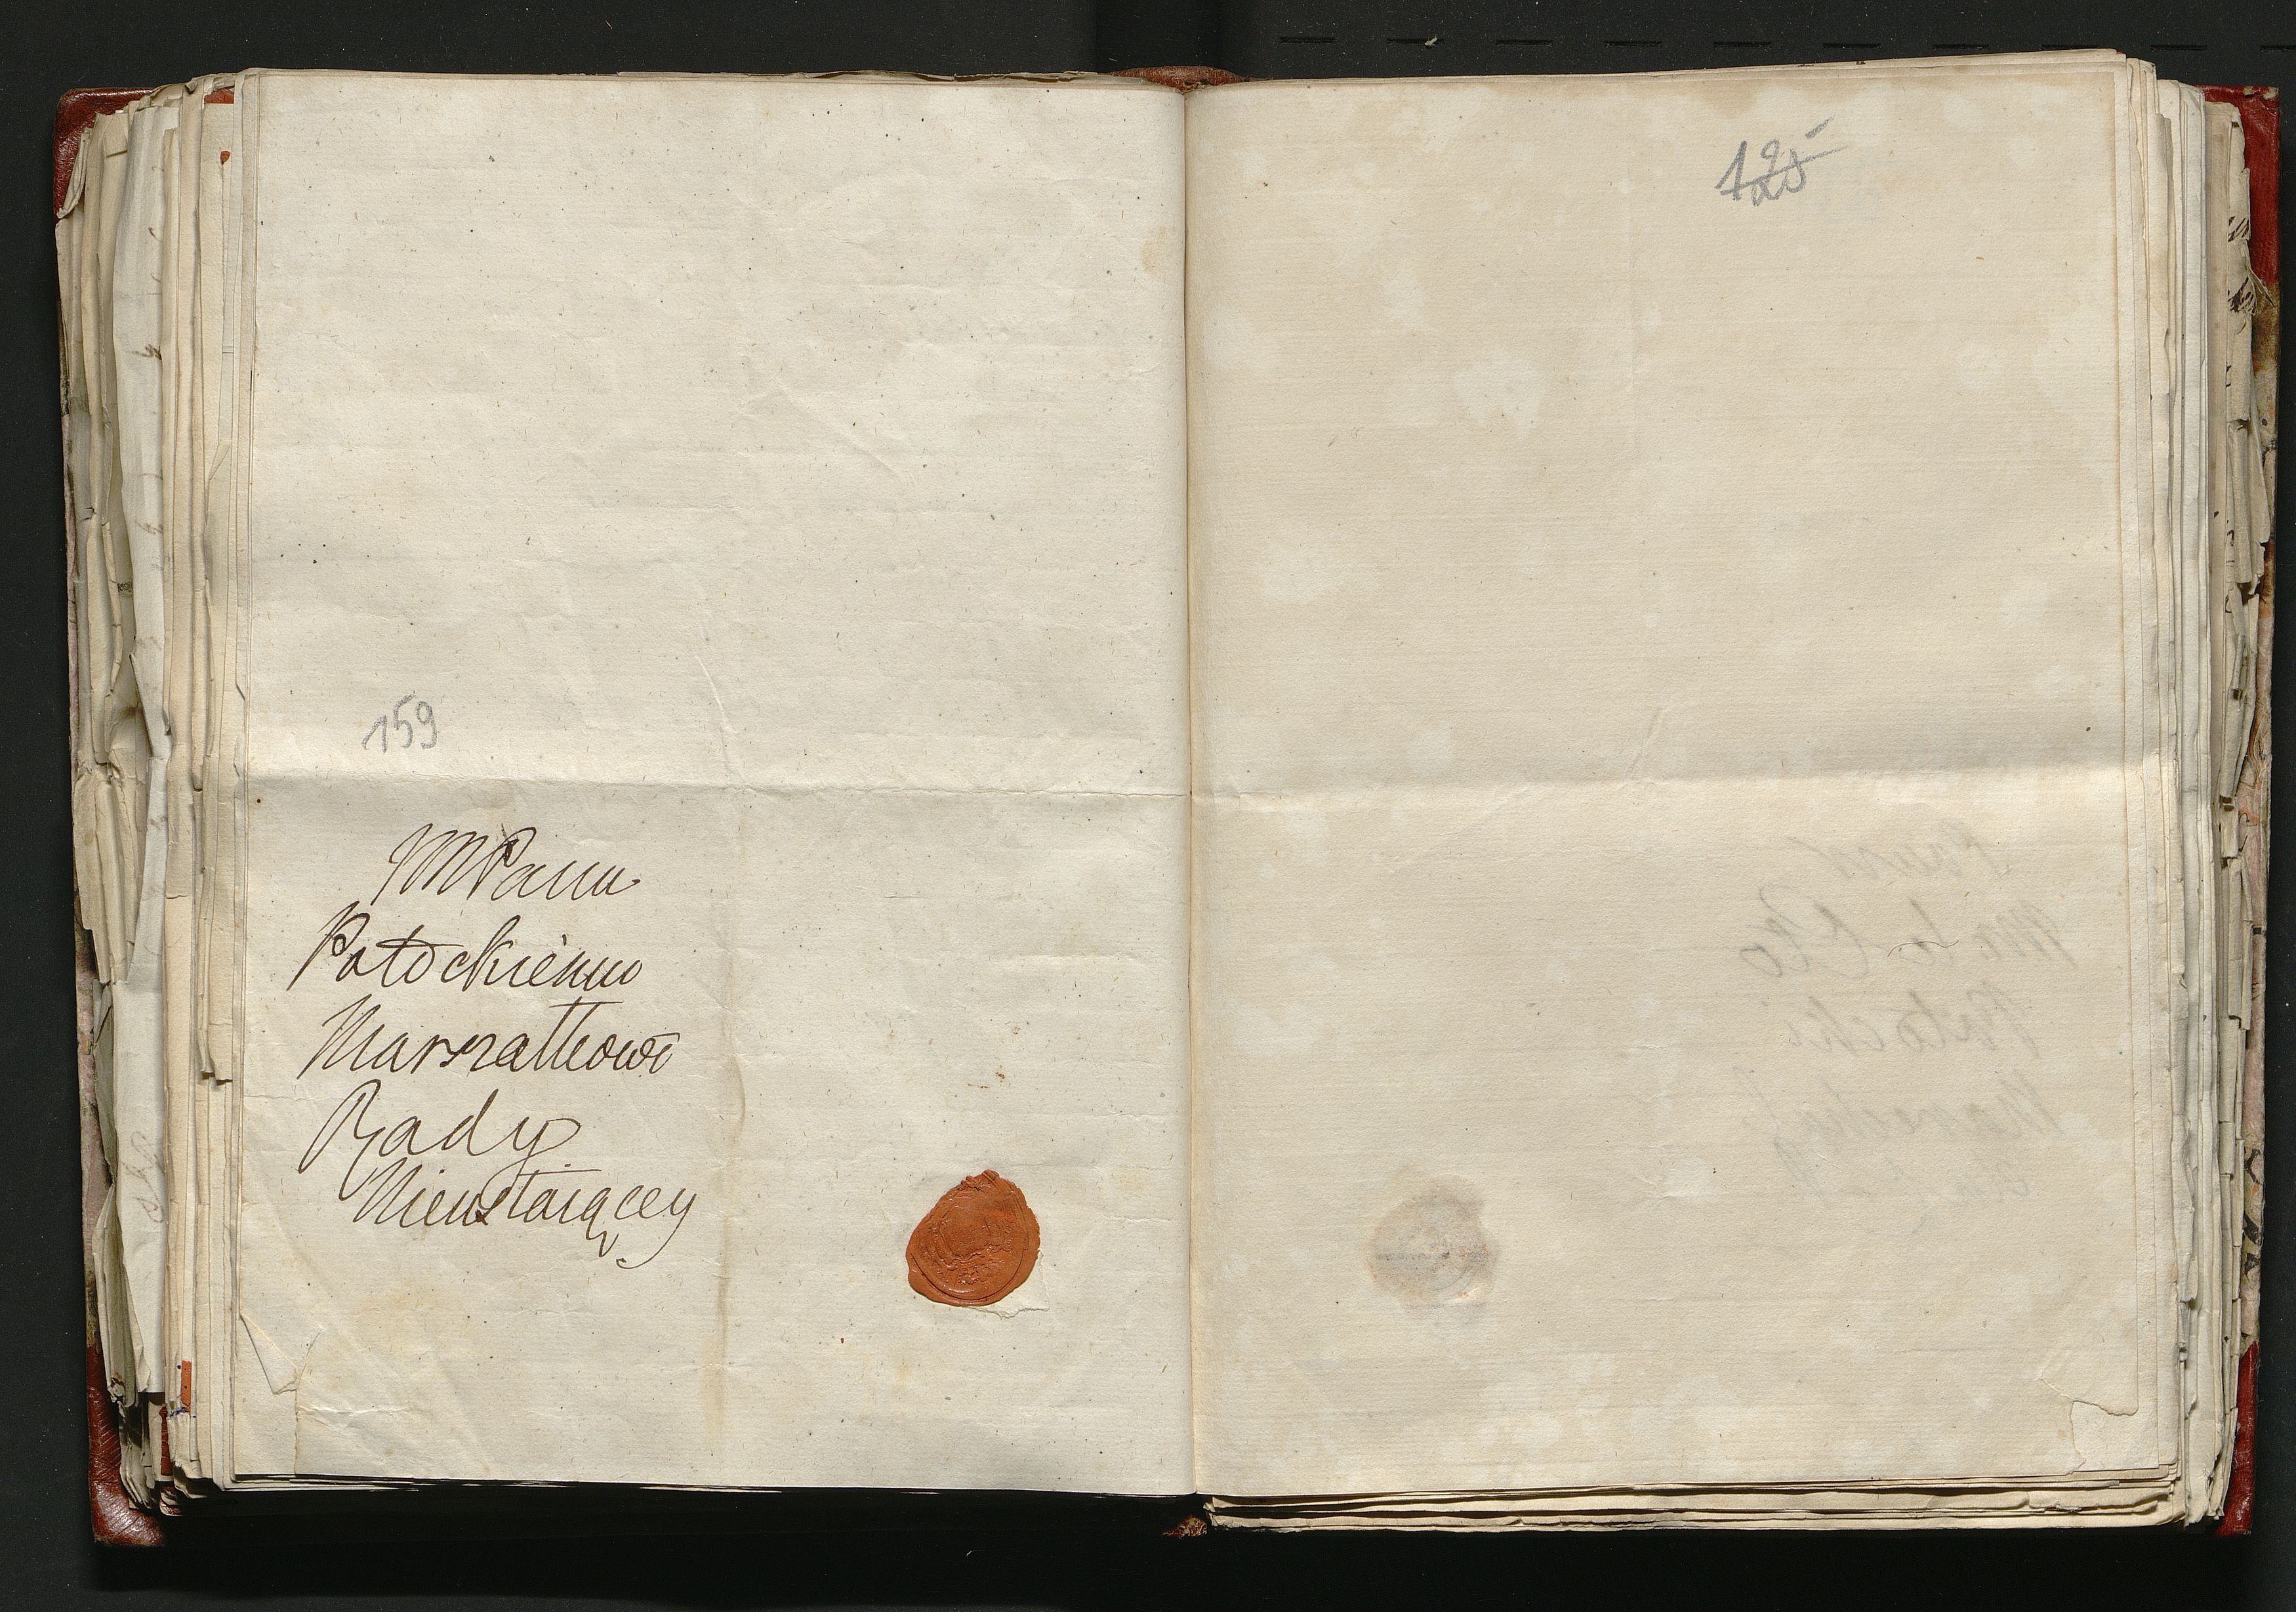 159
JMPanu
Potockiemu
Marszałkowi
Rady
Nieustaiącey
125